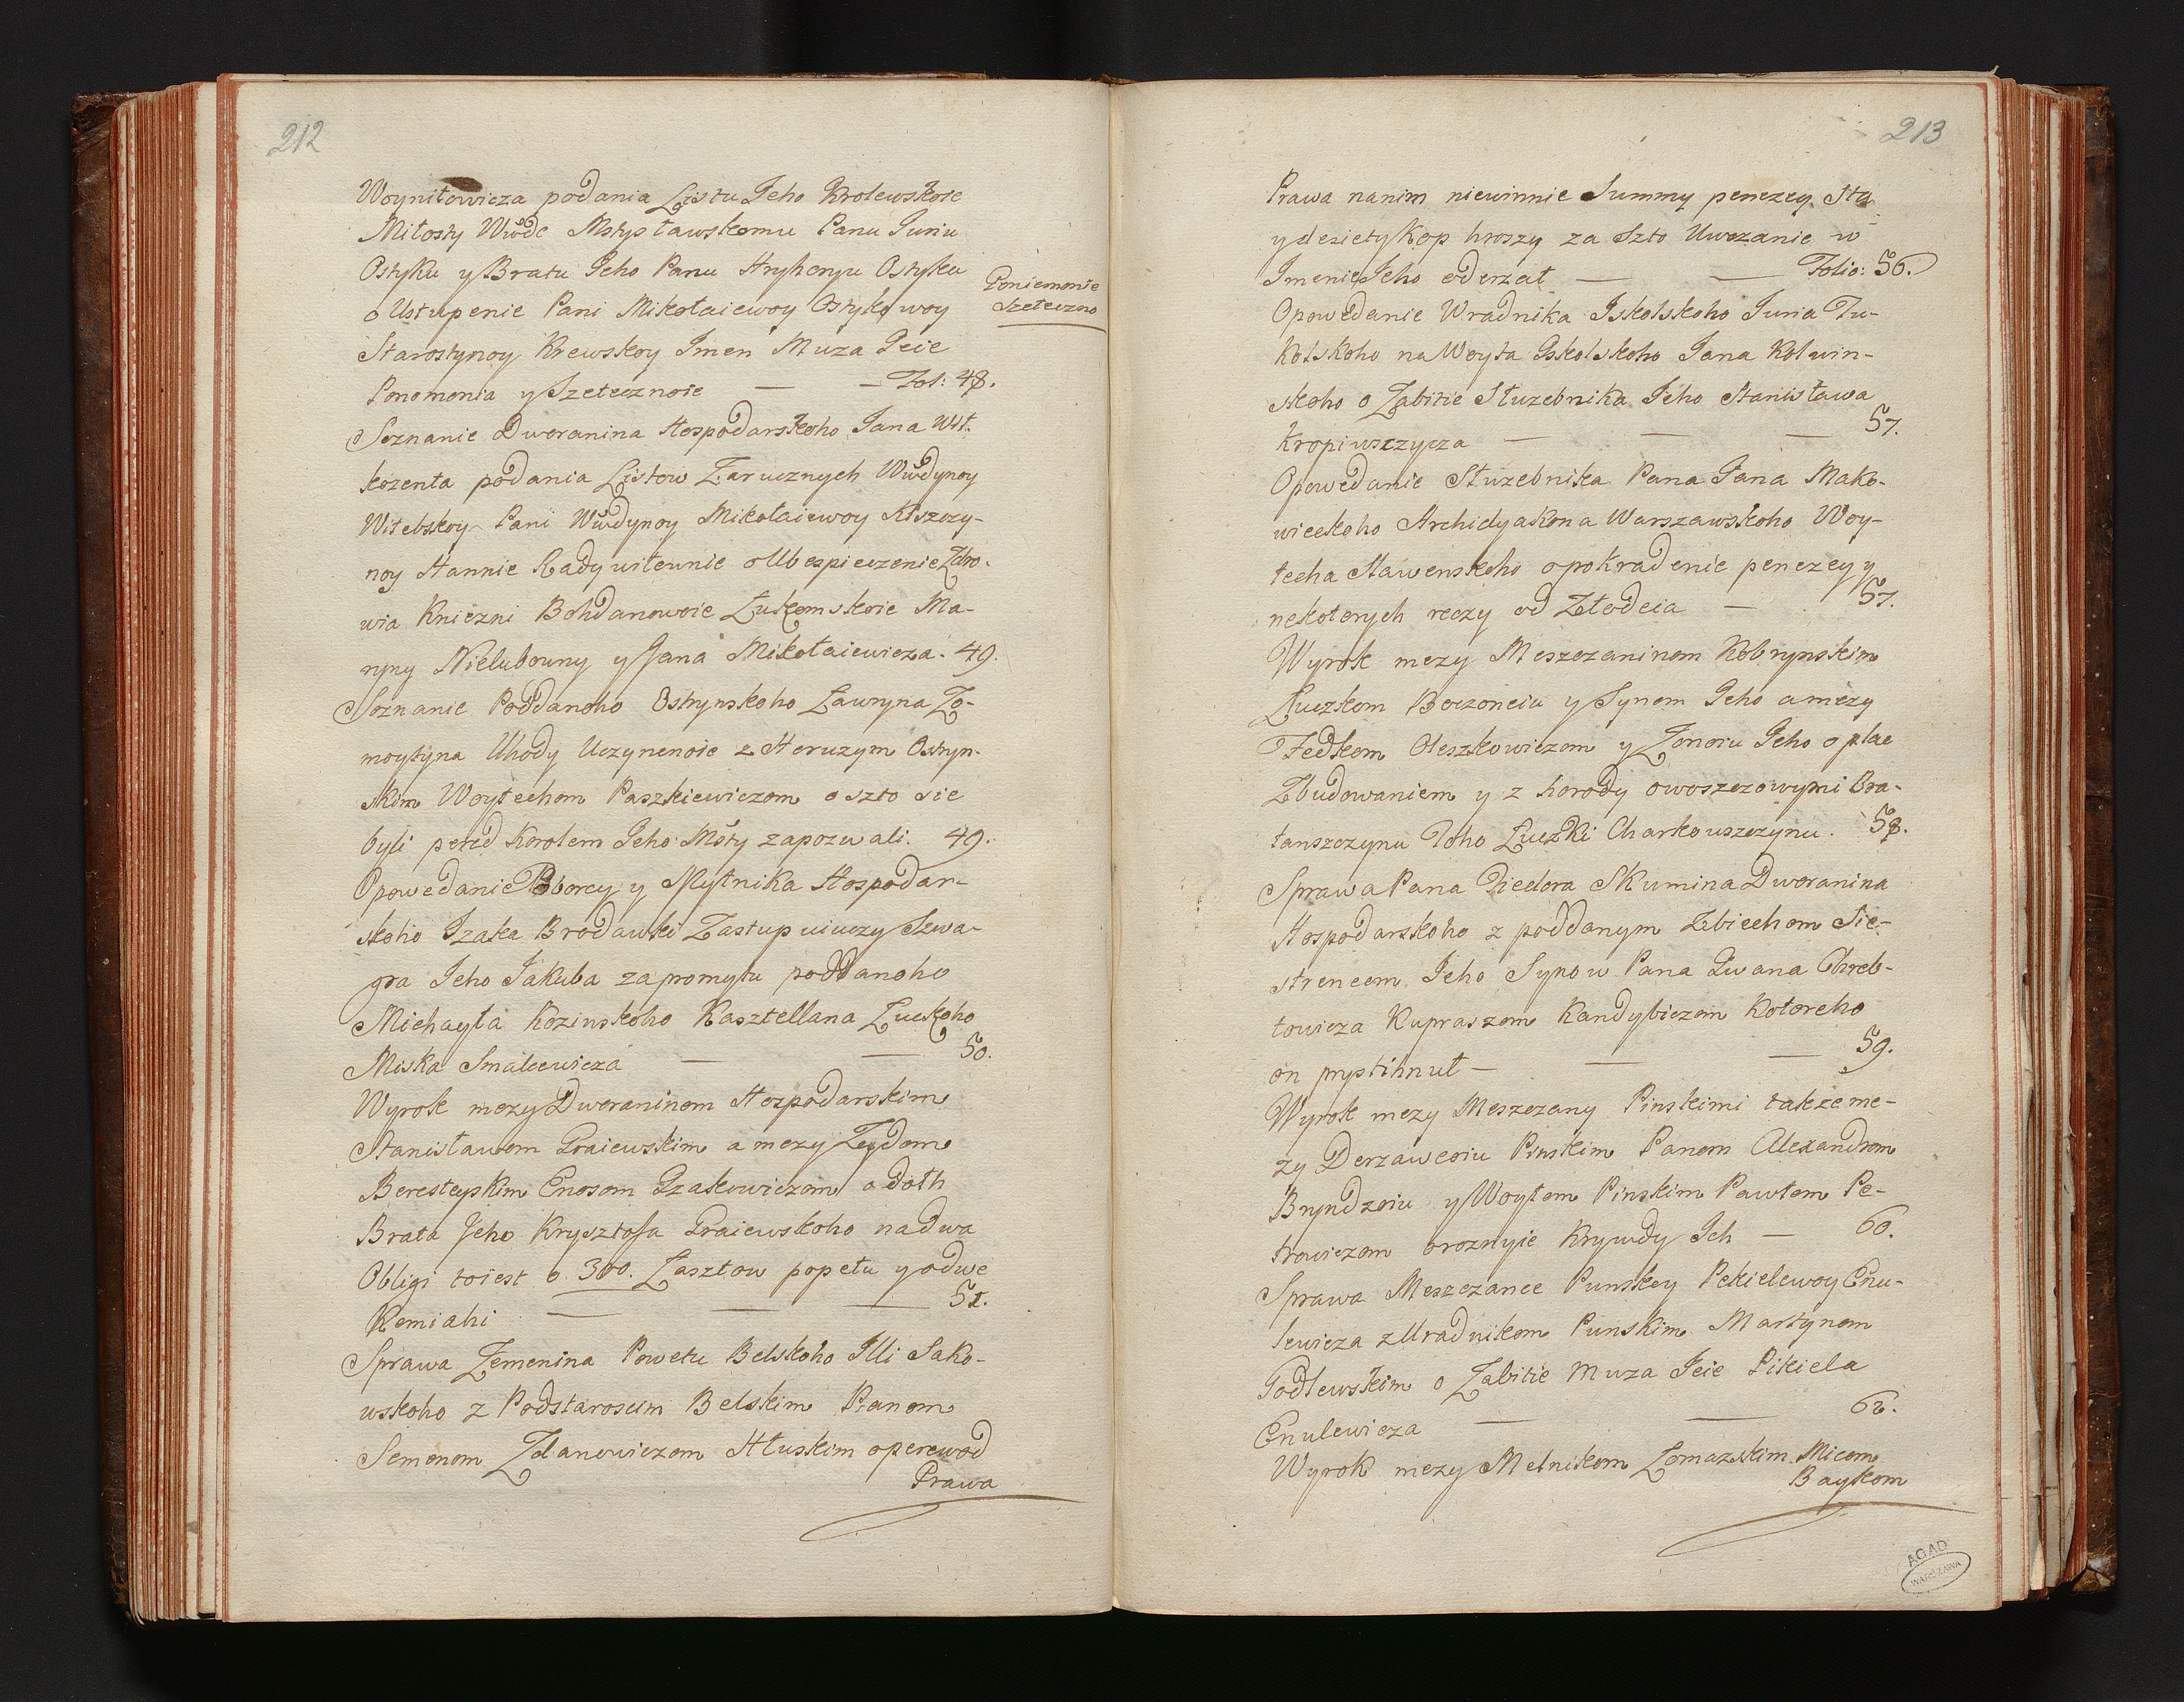 212
Woyniłowicza podania Listu Jeho Krolewskoie
Miłosty Wwde Mstysławskomu Panu Juriu
Ostyku y Bratu Jeho Panu Hryhoryu Ostyku
o Ustupenie Pani Mikołaiewoy Ostykowoy
Starostynoy Krewskoy Imen Muza Jeie
Ponomonia y Szetecznoie — — Fol: 48.
Poniemonie
Szeteczno
Soznanie Dworanina Hospodarskoho Jana Wit-
kozenta podania Listow Zarucznych Wwdynoy
Witebskoy Pani Wwdynoy Mikołaiewoy Kiszczy-
noy Hannie Radywiłownie o Ubezpieczenie Zdro-
wia Kniezni Bohdanowoie Łukomskoie Ma-
ryny Nielubowny y Jana Mikołaiewicza. 49.
Soznanie Poddanoho Ostrynskoho Ławryna Zo-
moytyna Uhody Uczynenoie z Heruzym Ostryn-
skim Woytechom Paszkiewiczom o szto sie
byli pered Korolem Jeho Msty zapozwali. 49.
Opowedanie Poborcy y Mytnika Hospodar-
skoho Izaka Brodawki Zastupuiuczy Szwa-
gra Jeho Jakuba zapromytu poddanoho
Michayła Kozinskoho Kasztellana Łuckoho
Miska Smalcewicza — — 50.
Wyrok mezy Dworaninom Hospodarskim
Stanisławom Graiewskim a mezy Zydom
Beresteyskim Enosom Izakowiczom o doth
Brata Jeho Krysztofa Graiewskoho na dwa
Obligi toiest o 300. Łasztow popełu y o dwe
Komiahi — — — 51.
Sprawa Zemenina Powetu Belskoho Illi Sako-
wskoho z Podstarosum Belskim Panom
Semenom Zdanowiczom Hłuskim o perewod
Prawa
213
Prawa nanim niewinnie Summy penezey Sta
y desiety Kop hroszy za szto Uwezanie w
Imenie Jeho oderzał — — Folio: 56.
Opowedanie Wradnika Iskolskoho Juria Tu-
kolskoho na Woyta Iskolskoho Jana Kolwin-
skoho o Zabitie Słuzebnika Jeho Stanisława
Kropiwszczycza — — — 57.
Opowedanie Słuzebnika Pana Jana Mako-
wieckoho Archidyakona Warszawskoho Woy-
techa Sławenskoho o pokradenie penezey y
nekotorych reczy od Złodeia — 57.
Wyrok mezy Meszczaninom Kobrynskim
Łuczkom Boczoneiu y Synom Jeho a mezy
Fedkom Oleszkowiczom y Zonoiu Jeho o plac
Zbudowaniem y z horody owoszczowymi Bra-
tanszczynu Toho Łuczki Charkouszczynu. 58.
Sprawa Pana Fiedora Skumina Dworanina
Hospodarskoho z poddanym Zbiechom Sie-
strencem Jeho Synow Pana Iwana Chreb-
towicza Kupraszom Kandybiczom Kotoreho
on prystihnuł — — — 59.
Wyrok mezy Meszczany Pinskimi takze me-
zy Derzawcoiu Pinskim Panom Alexandrom
Bryndzoiu y Woytom Pinskim Pawłom Pe-
trowiczom o roznyie Krywdy Ich — 60.
Sprawa Meszczance Punskoy Pekielewoy Enu-
lewicza z Uradnikom Punskim Martynom
Godlewskim o Zabitie Muza Jeie Pikiela
Enulewicza — — 62.
Wyrok mezy Melnikom Łomazskim Micom
Baykom
AGAD
WARSZAWA